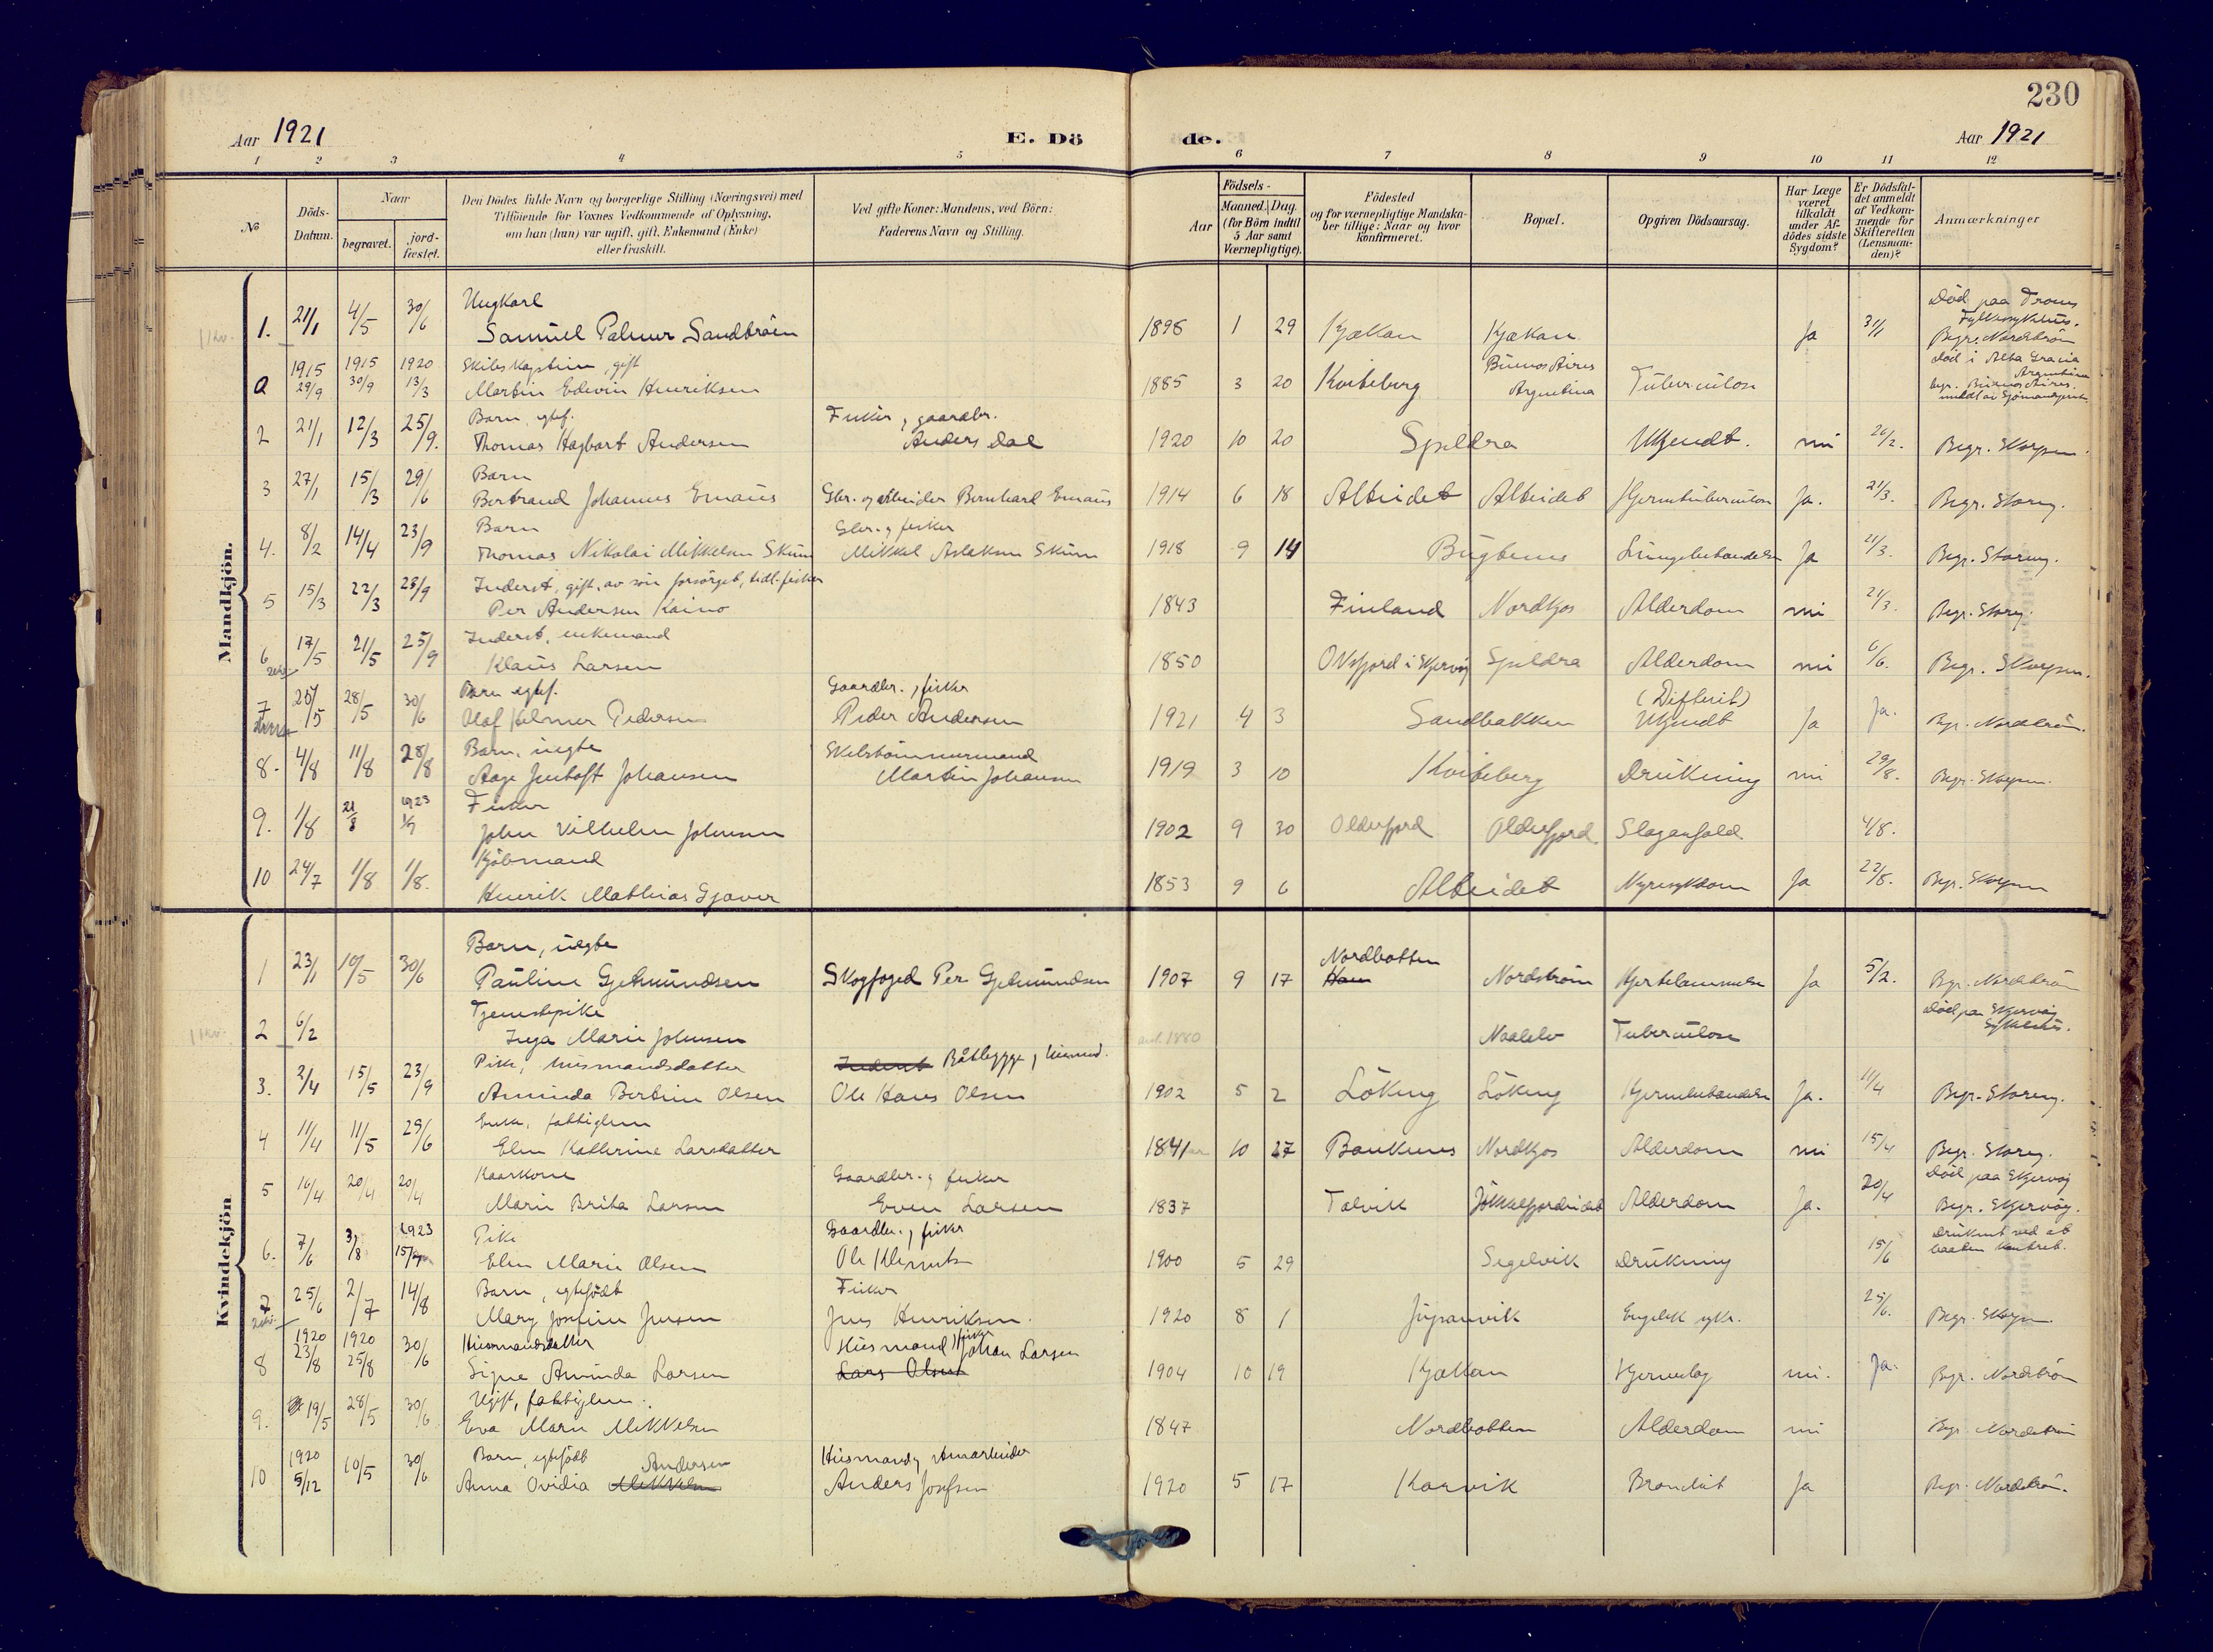 230
Aar 1921
E. Dö de.
Aar 1921
1 2 3 4 5 6 7 8 9 10 11 12
No
Döds-Datum.
Naar
begravet.
jord-fæstet.
Den Dödes fulde Navn og borgerlige Stilling (Næringsvei) med
Tilföiende for Voxnes Vedkommende af Oplysning,
om han (hun) var ugift, gift, Enkemand (Enke)
eller fraskilt.
Ved gifte Koner: Mandens, ved Börn:
Faderens Navn og Stilling.
Födsels-
Aar
Maaned. Dag.
(for Börn indtil
5 Aar samt
Værnepligtige).
Födested
og for værnepligtige Mandska-
ber tillige: Naar og hvor
konfirmeret.
Bopæl.
Opgiven Dödsaarsag.
Har Læge
været
tilkaldt
under Af-
dödes sidste
Sygdom?
Er Dödsfal-
det anmeldt
af Vedkom-
mende for
Skifteretten
(Lensman-
den)?
Anmærkninger
Mandkjön.
Ungkarl Död paa Troms
Fylkessykehus.
1. 21/1 4/5 30/6 Samuel Palmer Sandbråen 1898 1 29 Kjækan Kjækan Ja 31/1 Begr. Nordström
1915 1915 1920 Skibskaptein, gift Buenos Aires död i Alta Gracia
Argentina
a 29/9 30/9 13/3 Martin Edevin Henriksen 1885 3 20 Kviteberg Argentina Tuberculose begr. Buenos Aires.
Barn, egtef. Fisker, gaardbr.
2 21/1 12/3 25/9. Thomas Hagbart Andersen Anders Dal 1920 10 20 Spildra Ukjendt. nei 26/2. Begr. Skorpen.
Barn
3 27/1 15/3 29/6 Bertrand Johannes Emaus Gbr. og arbeider Bernhard Emaus 1914 6 18 Alteidet Alteidet Hjernetuberculose Ja. 21/3. Begr. Storeng.
Barn Gbr. og fisker
4. 8/2 14/4 23/9 Thomas Nikolai Mikkelsen Skum Mikkel Aslaksen Skum 1918 9 14 Bugtenes Lungebetændelse Ja 21/3. Begr. Storeng.
Inderst, gift, av sön forsörget, tidl. fisker
5 15/3 22/3 28/9 Per Andersen Kaino 1843 Finland Nordkjos Alderdom nei 21/3. Begr. Storeng.
Inderst, enkemand
6 17/5 21/5 25/9 Klaus Larsen 1850 Oksfjord i Skjervöy Spildra Alderdom nei 6/6. Begr. Skorpen.
Barn egtef. Gaardbr., fisker (Difterit)
7 20/5 28/5 30/6 Olaf Hilmer Pedersen Peder Andersen 1921 4 3 Sandbakken Ukjendt Ja Ja. Begr. Nordström.
Barn, uegte Skibstömmermand
8. 4/8 11/8 28/8 Aage Jentoft Johansen Martin Johansen 1919 3 10 Kviteberg Drukning nei 29/8. Begr. Skorpen.
1923 Fisker
9. 1/8 21/8 1/9 John Vilhelm Johnsen 1902 9 30 Olderfjord Olderfjord Slaganfald 4/8.
Kjöbmand
10 24/7 1/8 1/8. Henrik Mathias Gjæver 1853 9 6 Alteidet Nyresykdom Ja 22/8. Begr. Skorpen
Kvindekjön
Barn, uegte Nordbotten
1 23/1 10/5 30/6 Pauline Gjetmundsen Skogfoged Per Gjetmundsen 1907 9 17 Ham Nordström Hjertelammelse Ja 5/2. Begr. Nordström
Tjenestepike Död paa Skjervöy
Sykehus.
2 6/2 Inga Marie Johnsen ant. 1880 Tuberculose
Pike, husmandsdatter Inderst Båtbygge, husmand.
3. 2/4 15/5 23/9 Aminda Bertine Olsen Ole Hans Olsen 1902 5 2 Löking Löking Hjernebetændelse Ja. 11/4 Begr. Storeng.
Enke, fattiglem
4 11/4 11/5 29/6 Elen Katherine Larsdatter 1841 10 27 Baukenes Nordkjos Alderdom nei 15/4 Begr. Storeng.
Kaarkone Gaardbr. og fisker Död paa Skjervöy
5 16/4 20/4 20/4 Marie Brita Larsen Even Larsen 1837 Talvik Jökkelfjordeidet Alderdom Ja. 20/4 Begr. Skjervöy.
1923 Pike Gaardbr., fisker Druknet ved at
baaden kantret.
6. 7/6 3/8 15/7 Elen Marie Olsen Ole Klemetsen 1900 5 29 Segelvik Drukning 15/6
Barn, egtefödt Fisker
7 25/6 2/7 14/8 Mary Josefine Jensen Jens Henriksen. 1920 8 1 Jupanvik Engelsk syke. 25/6. Begr. Skorpen.
1920 1920 Husmandsdatter Husmand, fisker Johan Larsen
8 23/8 25/8 30/6 Signe Aminda Larsen Lars Olsen 1904 10 19 Kjækan Hjerneslag nei. Ja. Begr. Nordström
Ugift, fattiglem.
9. 19/5 28/5 30/6 Eva Marie Mikkelsen 1847 Nordbotten Alderdom nei Begr. Nordström
1920 Barn, egtefödt Andersen Husmand,
10 5/12 10/5 30/6 Anna Ovidia Mikkelsen Anders Josefsen 1920 5 17 Karvik Bronchit Ja Begr. Nordström.